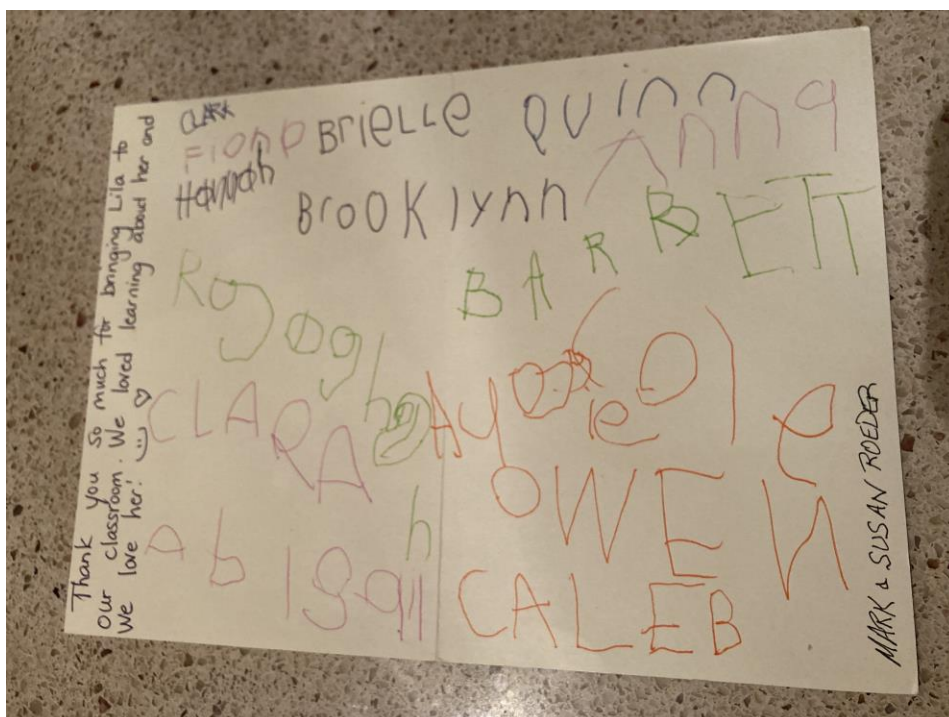 Thank you so much for bringing Lila to
our classroom. We loved learning about her and
We love her!
Fiona
Hannah
BrieLLe
QUinn
Anna
BrooKlynn
BARRETT
CLARA
Abigail
OWEN
CALEB
MARK & SUSAN ROEDER